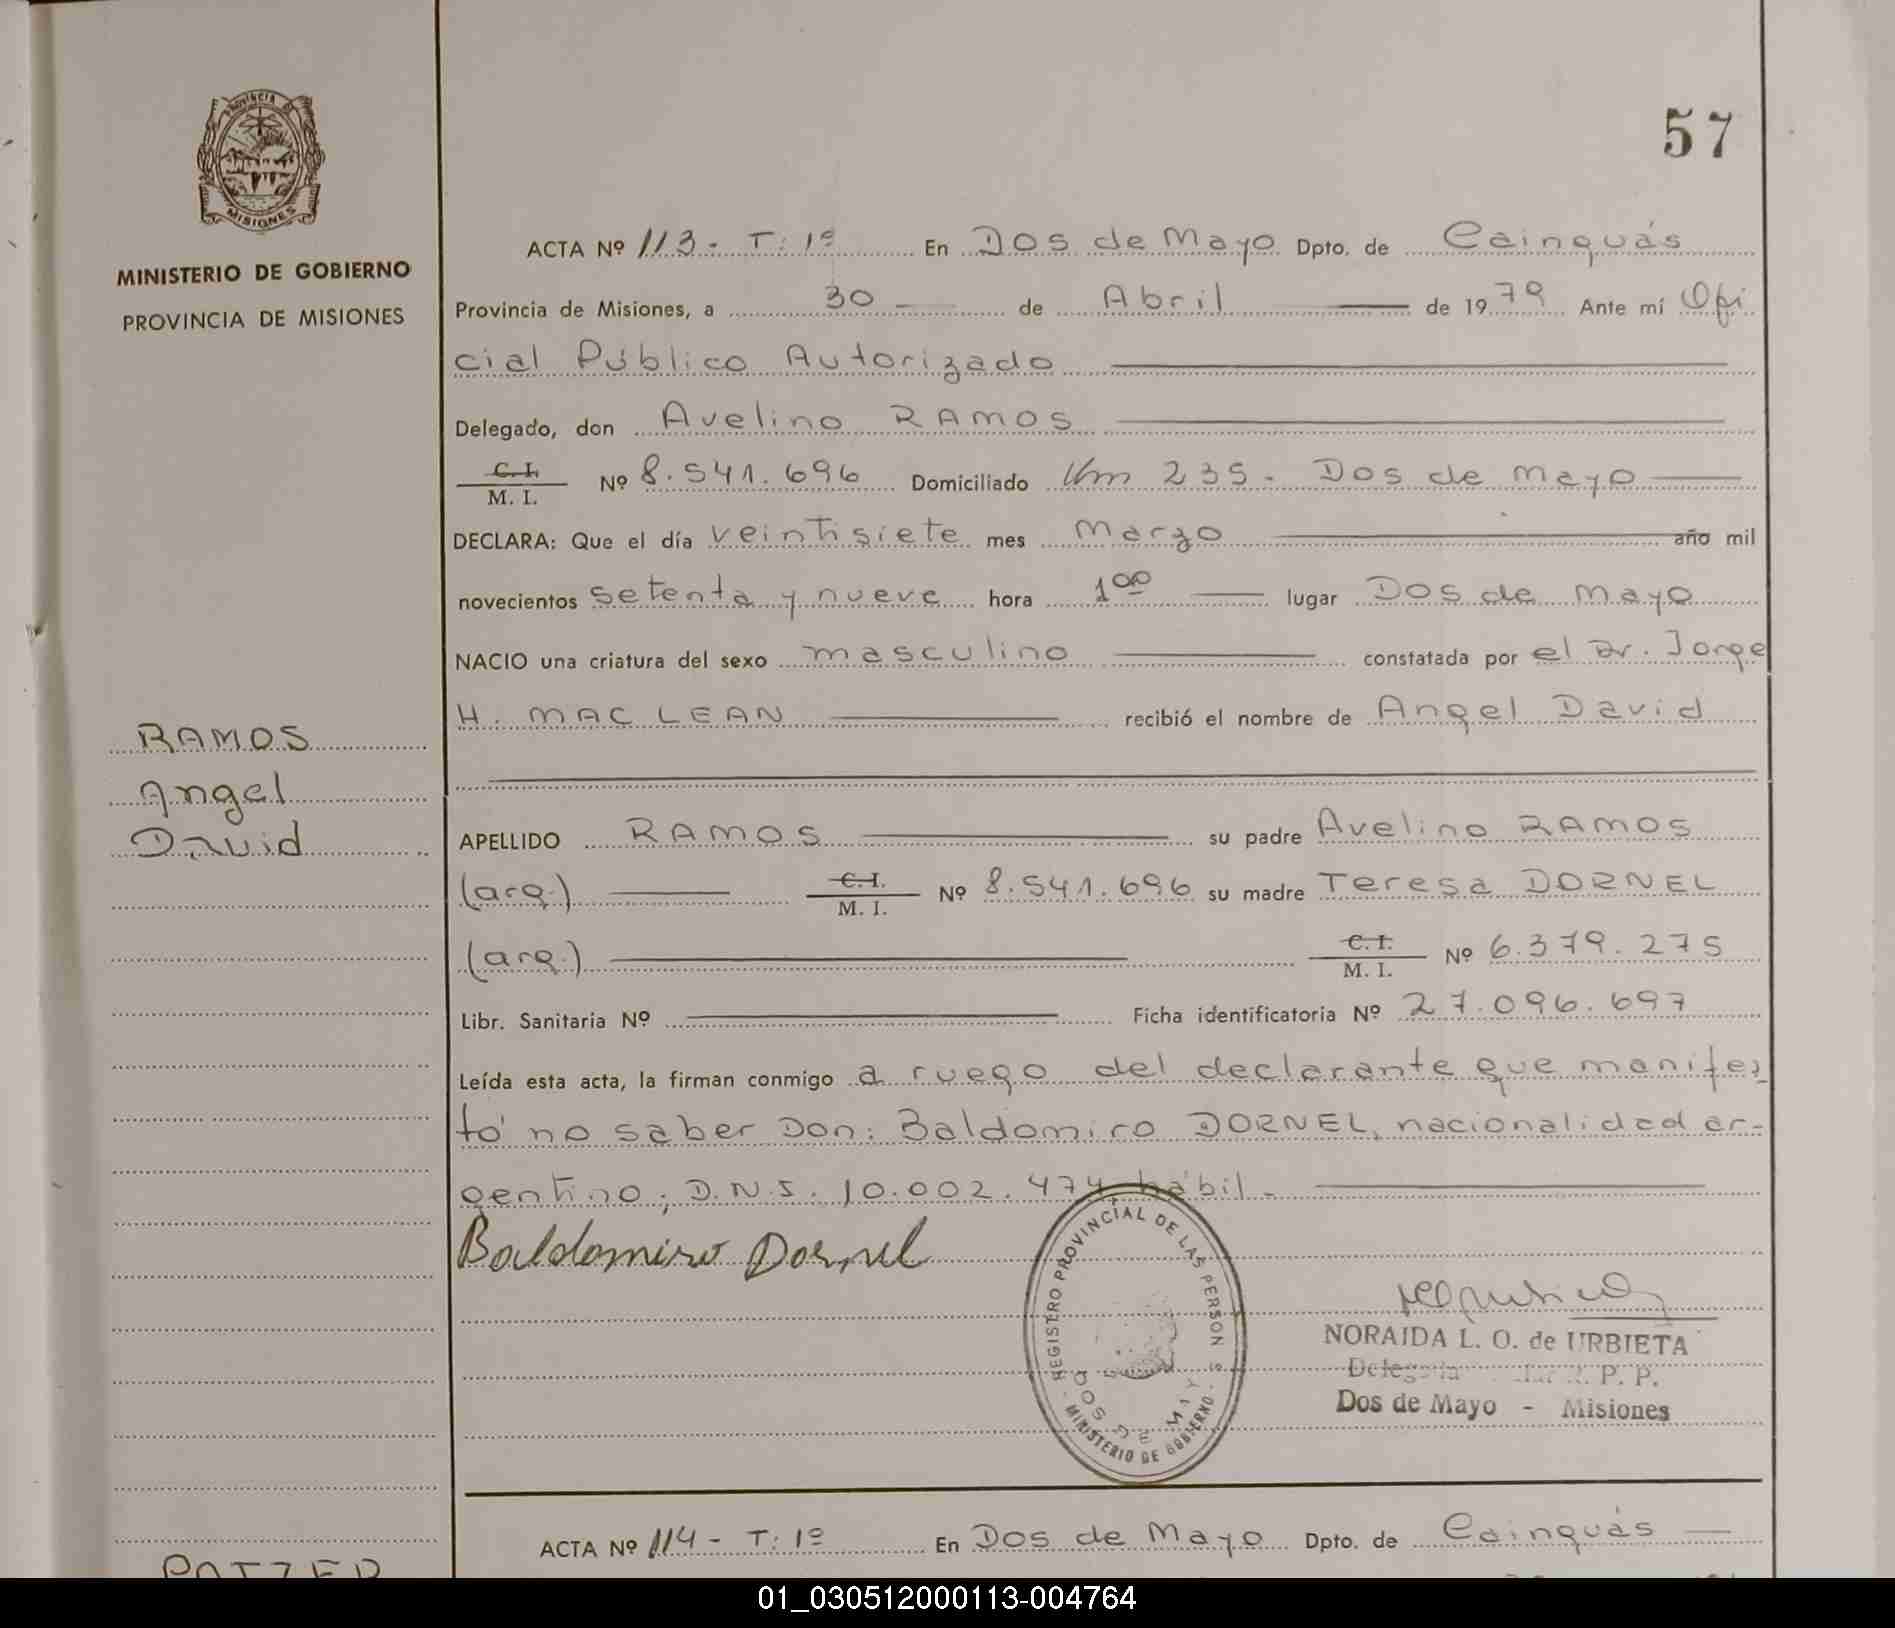 Provincia de
MISIONES
MINISTERIO DE GOBIERNO
PROVINCIA DE MISIONES
57
ACTA Nº 113 - T: 1º En Dos de Mayo Dpto. de Cainguás
Provincia de Misiones, a 30 de Abril de 1979 Ante mí Ofi
cial Público Autorizado
Delegado, don Avelino RAMOS
C. I.
M. I. Nº 8.541.696 Domiciliado Km 235 - Dos de Mayo
DECLARA: Que el día veintisiete mes Marzo año mil
novecientos setenta y nueve hora 1⁰⁰ lugar Dos de Mayo
NACIO una criatura del sexo masculino constatada por el Dr. Jorge
H. MAC LEAN recibió el nombre de Angel David
RAMOS
Angel
David
APELLIDO RAMOS su padre Avelino RAMOS
(arg.) C. I. M. I. Nº 8.541.696 su madre Teresa DORNEL
(arg.) C. I. M. I. Nº 6.379.275
Libr. Sanitaria Nº Ficha identificatoria Nº 27.096.697
Leída esta acta, la firman conmigo a ruego del declarante que manifes
tó no saber Don: Baldomiro DORNEL, nacionalidad ar-
gentino; D.N.I. 10.002.474 hábil.
Baldomiro Dornel
REGISTRO PROVINCIAL DE LAS PERSON S
DOS DE MAY
MINISTERIO DE GOBIERNO
NORAIDA L. O. de URBIETA
P. P.
Dos de Mayo - Misiones
ACTA Nº 114 - T: 1º En Dos de Mayo Dpto. de Cainguás
01_030512000113-004764